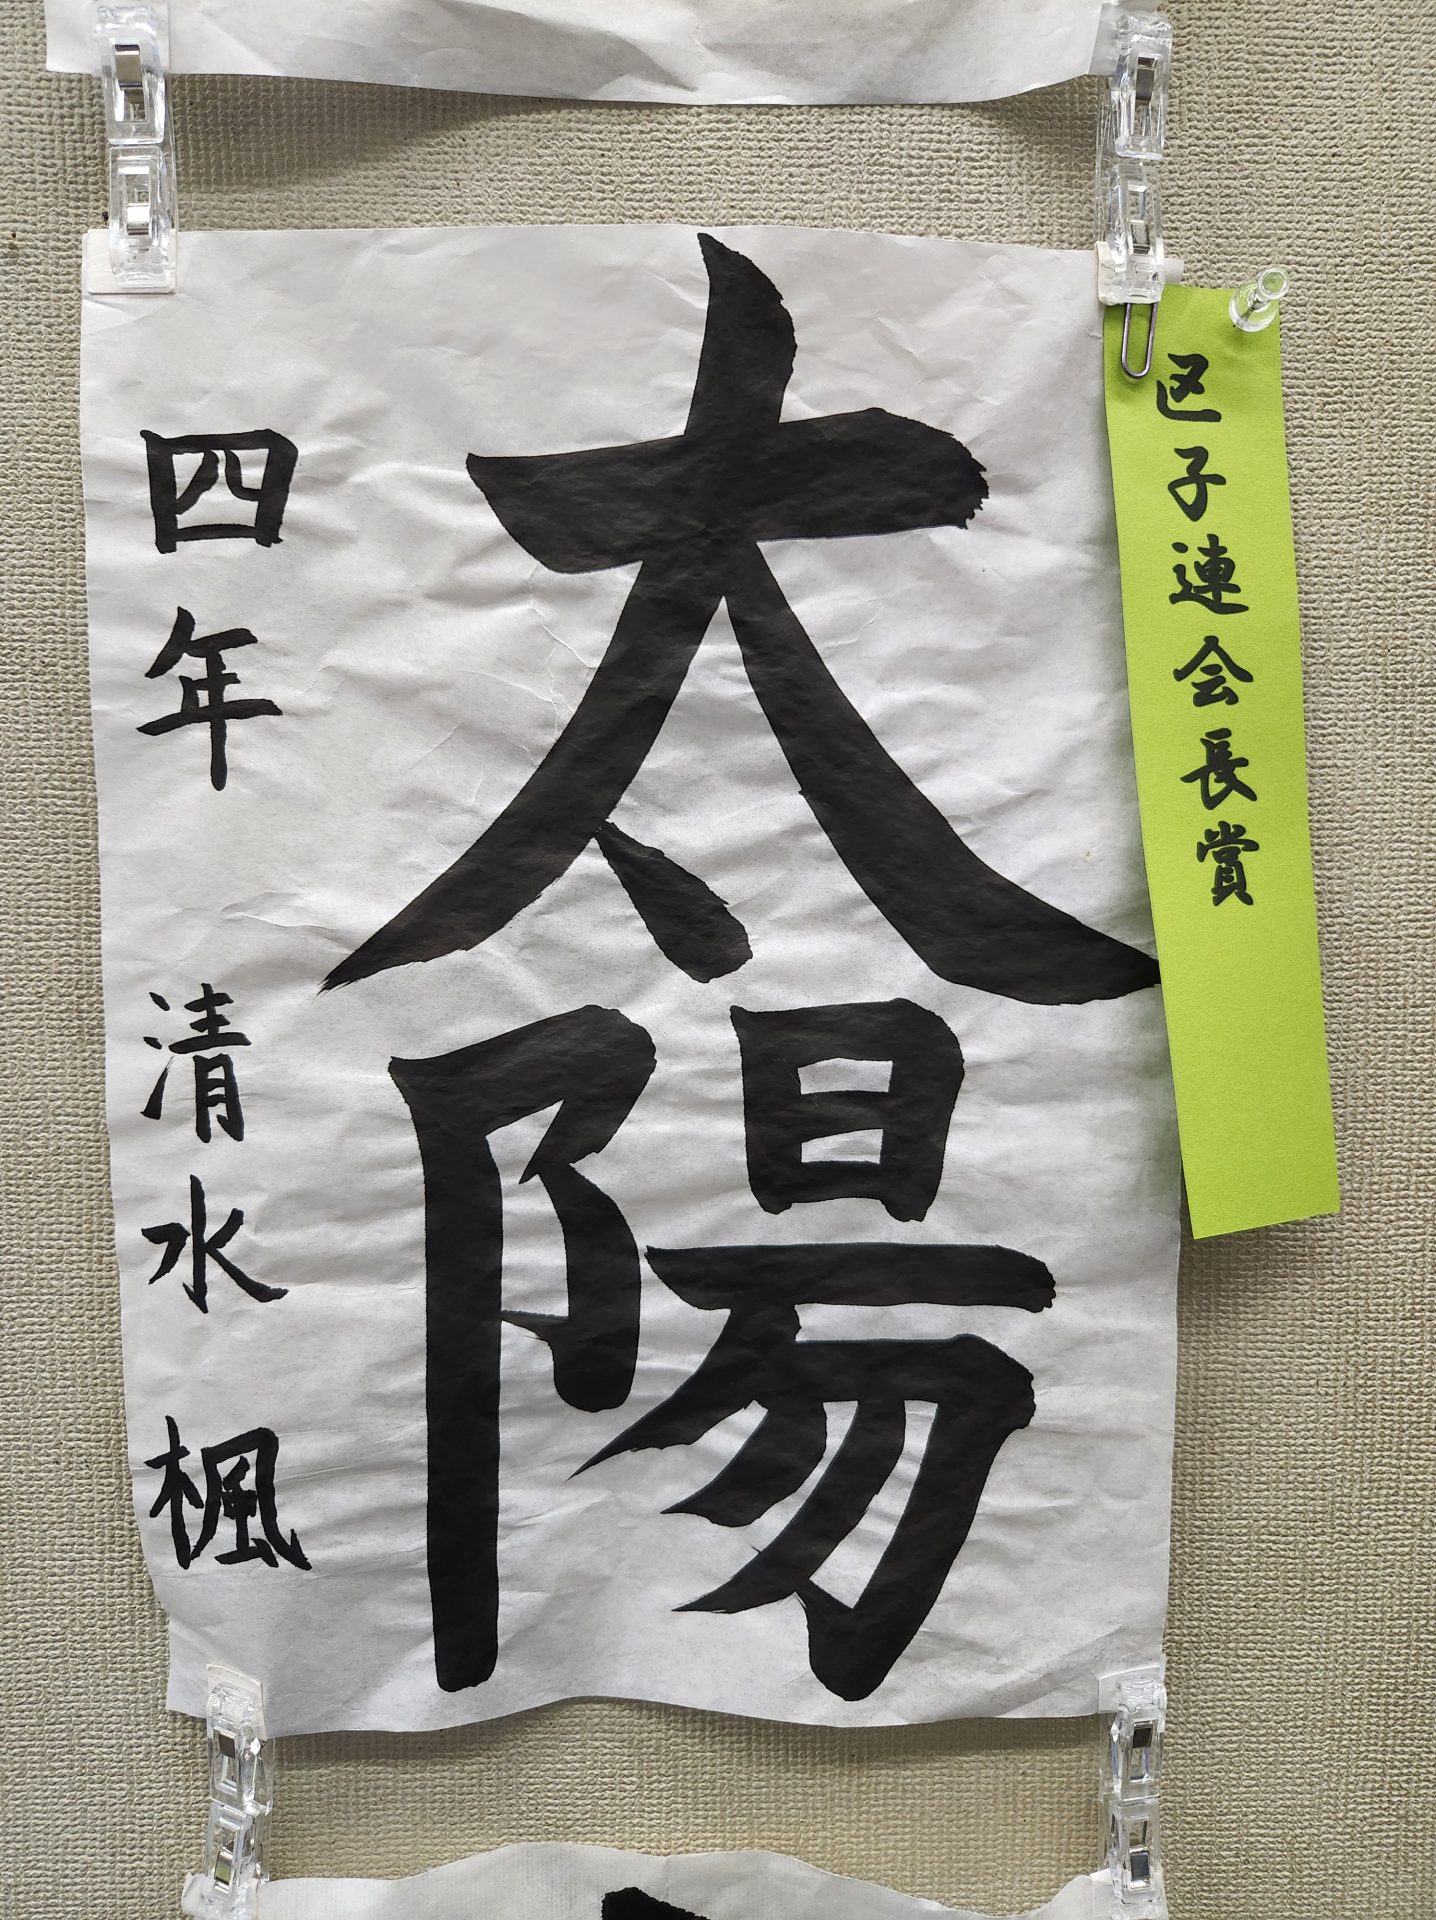 区子連会長賞
太陽
四年 清水 楓